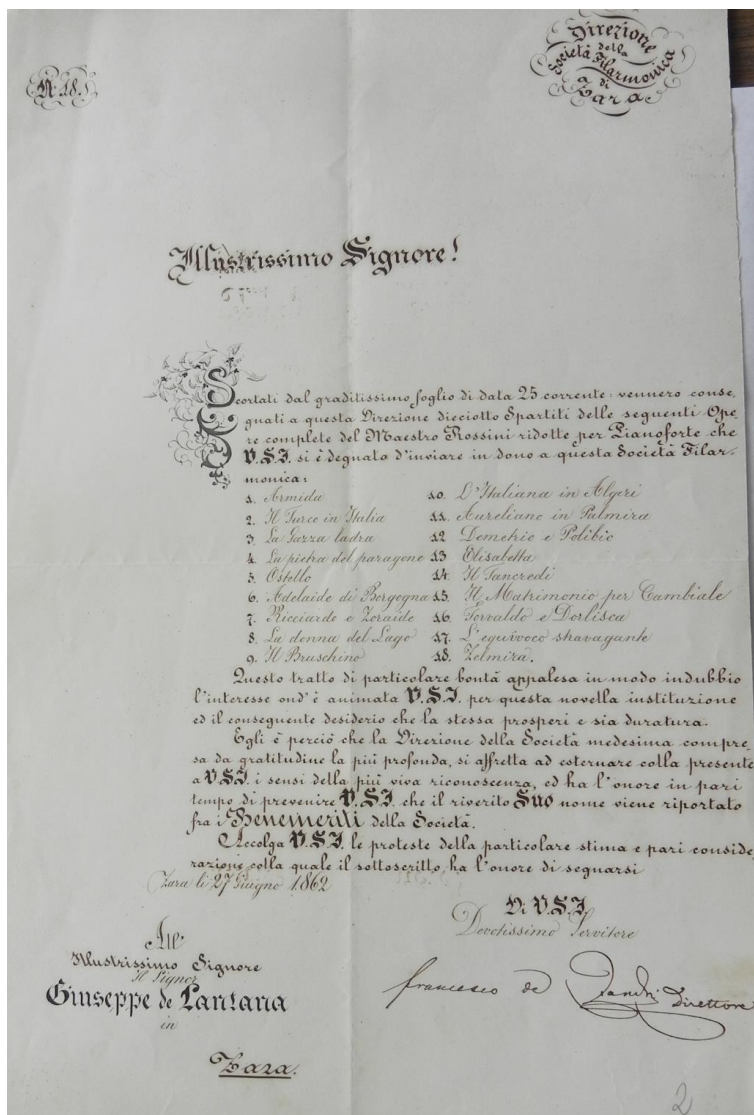 N. 18.
Direzione
della
Società Filarmonica
di
Zara
Illustrissimo Signore!
Scortati dal graditissimo foglio di data 25 corrente: vennero conse,
gnati a questa Direzione dieciotto Spartiti delle seguenti Ope,
re complete del Maestro Rossini ridotte per Pianoforte che
V.S.I. si è degnato d'inviare in dono a questa Società Filar-
monica:
1. Armida
2. Il Turco in Italia
3. La Gazza ladra
4. La pietra del paragone
5. Ostello
6. Adelaide di Borgogna
7. Ricciardo e Zoraide
8. La donna del Lago
9. Il Bruschino
10. L'Italiana in Algeri
11. Aureliano in Palmira
12 Demetrio e Polibio
13 Elisabetta
14. Il Tancredi
15. Il Matrimonio per Cambiale
16. Torvaldo e Dorlisca
17. L'equivoco stravagante
18. Zelmira.
Questo tratto di particolare bontà appalesa in modo indubbio
l'interesse ond'è animata V.S.I. per questa novella instituzione
ed il conseguente desiderio che la stessa prosperi e sia duratura.
Egli è perciò che la Direzione della Società medesima compre,
sa da gratitudine la più profonda, si affretta ad esternare colla presente
a V.S.I. i sensi della più viva riconoscenza, ed ha l'onore in pari
tempo di prevenire V.S.I. che il riverito Suo nome viene riportato
fra i Benemeriti della Società.
Accolga V.S.I. le proteste della particolare stima e pari conside,
razione, colla quale il sottoscritto ha l'onore di segnarsi
Zara li 27 Giugno 1862
Di V.S.I.
Devotissimo Servitore
francesco de Direttore
All'
Illustrissimo Signore
Il Signor
Giuseppe de Lantana
in
Zara.
2